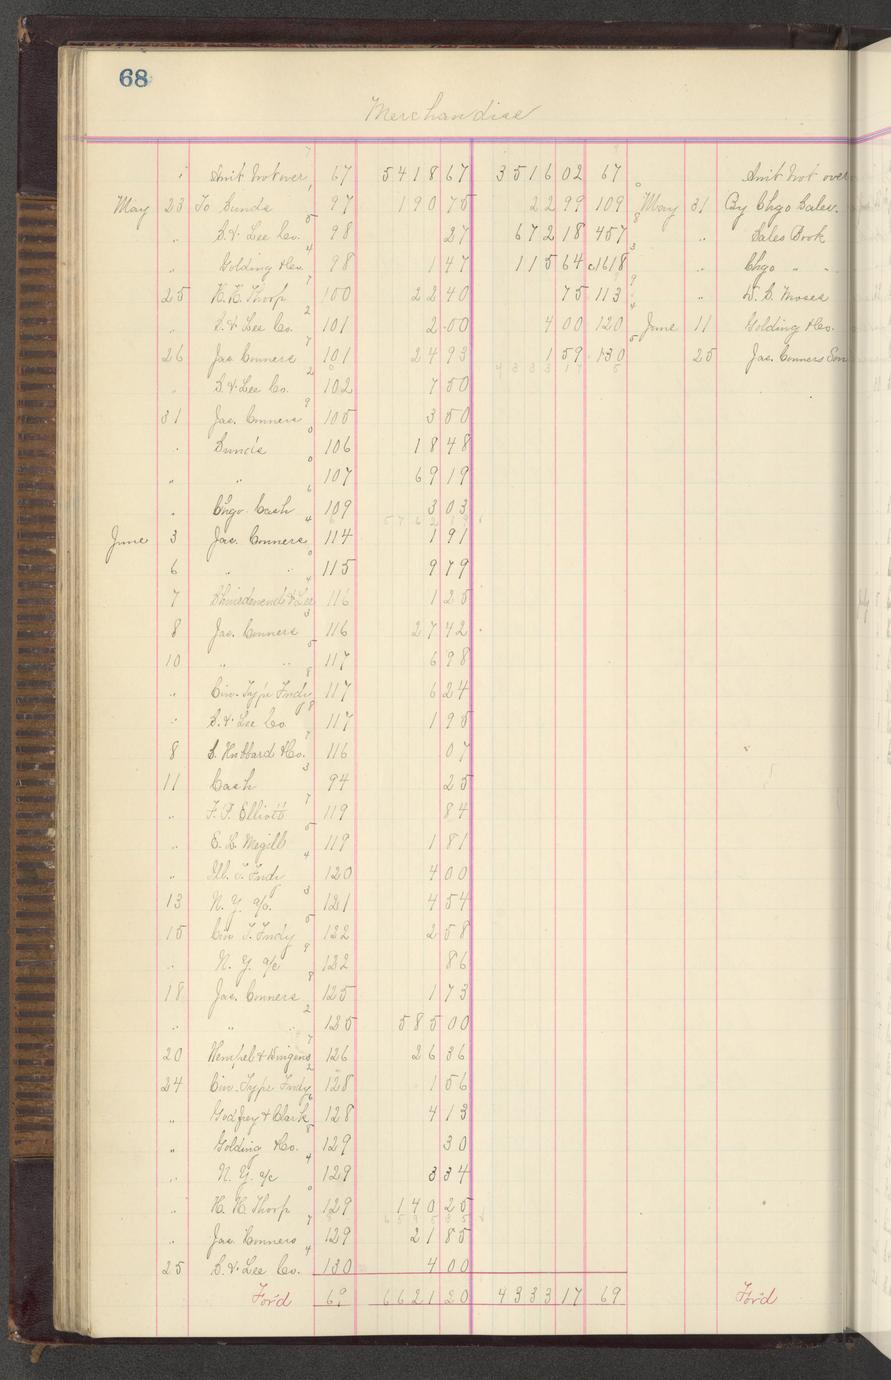 68
Merchandise
" Amt brot over 67 5418 67 3516 02 67 Amt brot over
May 23 To Sunds 97 190 75 22 99 109 May 31 By Chgo Sales.
" S. & Lee Co. 98 27 672 18 457 " Sales Book
" Golding & Co. 98 1 47 115 64 c1618 " Chgo " "
25 H. H. Thorp 100 22 40 75 113 " W. S. Moses
" S. & Lee Co. 101 2 00 4 00 120 June 11 Golding & Co.
26 Jas. Conners 101 24 93 1 59 130 25 Jas. Conners Son
4333 17
" S. & Lee Co. 102 7 50
31 Jas. Conners 105 3 50
" Sunds 106 18 48
" " 107 69 19
" Chgo. Cash 109 3 03
June 3 Jas. Conners 114 1 91
6 " " 115 9 79
7 & Lee 116 1 25
8 Jas. Conners 116 27 42
10 " " 117 6 98
" Cin. Type Fndy 117 6 24
" S. & Lee Co. 117 1 95
8 S. Hubbard & Co. 116 07
11 Cash 94 25
" F. P. Elliott 119 84
" E. L. Megill 119 1 81
" Ill. T. Fndy 120 4 00
13 N. Y. a/c. 121 4 54
15 Cin T. Fndy 122 2 58
" N. Y. a/c 122 86
18 Jas. Conners 125 1 73
" " " 125 585 00
20 Hempel & Dingens 126 26 36
24 Cin. Type Fndy 128 1 56
" Godfrey & Clark 128 4 13
" Golding & Co. 129 30
" N. Y. a/c 129 3 34
" H. H. Thorp 129 140 25
" Jas. Conners 129 21 85
25 S. & Lee Co. 130 4 00
For'd 69 6621 20 4333 17 69 For'd